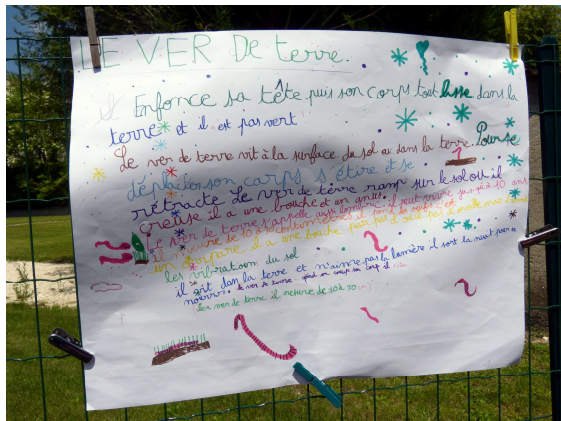 LE VER De terre.
il Enfonce sa tête puis son corps tout lisse dans la
terre et il est pas vert
Le ver de terre vit à la surface du sol ou dans la terre. Pour se
déplacer son corps s'étire et se
rétracte Le ver de terre ramp sur le sol ou il
creuse il a une bouche et en anus.
Le ver de terre s'appelle aussi lombric il peut vivre jusqu'à 10 ans
il mesure de 10 à 30 centimètres il
il a une bouche pas
les vibration du sol
il vit dans la terre et n'aime pas la lumière il sort la nuit pour se
nourrir. le ver de terre quand on coup
les ver de terre il mesure de 10 à 30 cm